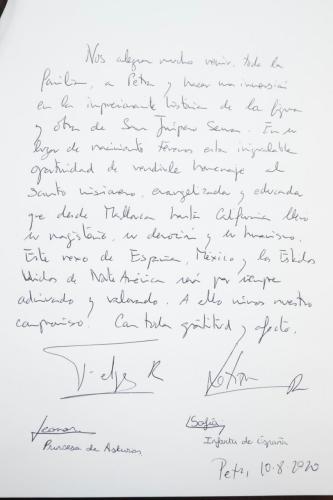 Nos alegra mucho venir, toda la
familia, a Petra y hacer una inmersión
en la impresionante historia de la figura
y obra de San Junípero Serra. En su
lugar de nacimiento tenemos esta inigualable
oportunidad de rendirle homenaje al
Santo misionero, evangelizador y educador
que desde Mallorca hasta California llevó
su magisterio, su devoción y su humanismo.
Este nexo de España, México y los Estados
Unidos de Norte América será por siempre
admirado y valorado. A ello unimos nuestro
compromiso. Con toda gratitud y afecto.
Felipe R
Letizia R
Leonor
Sofía
Princesa de Asturias
Infanta de España
Petra, 10.8.2020